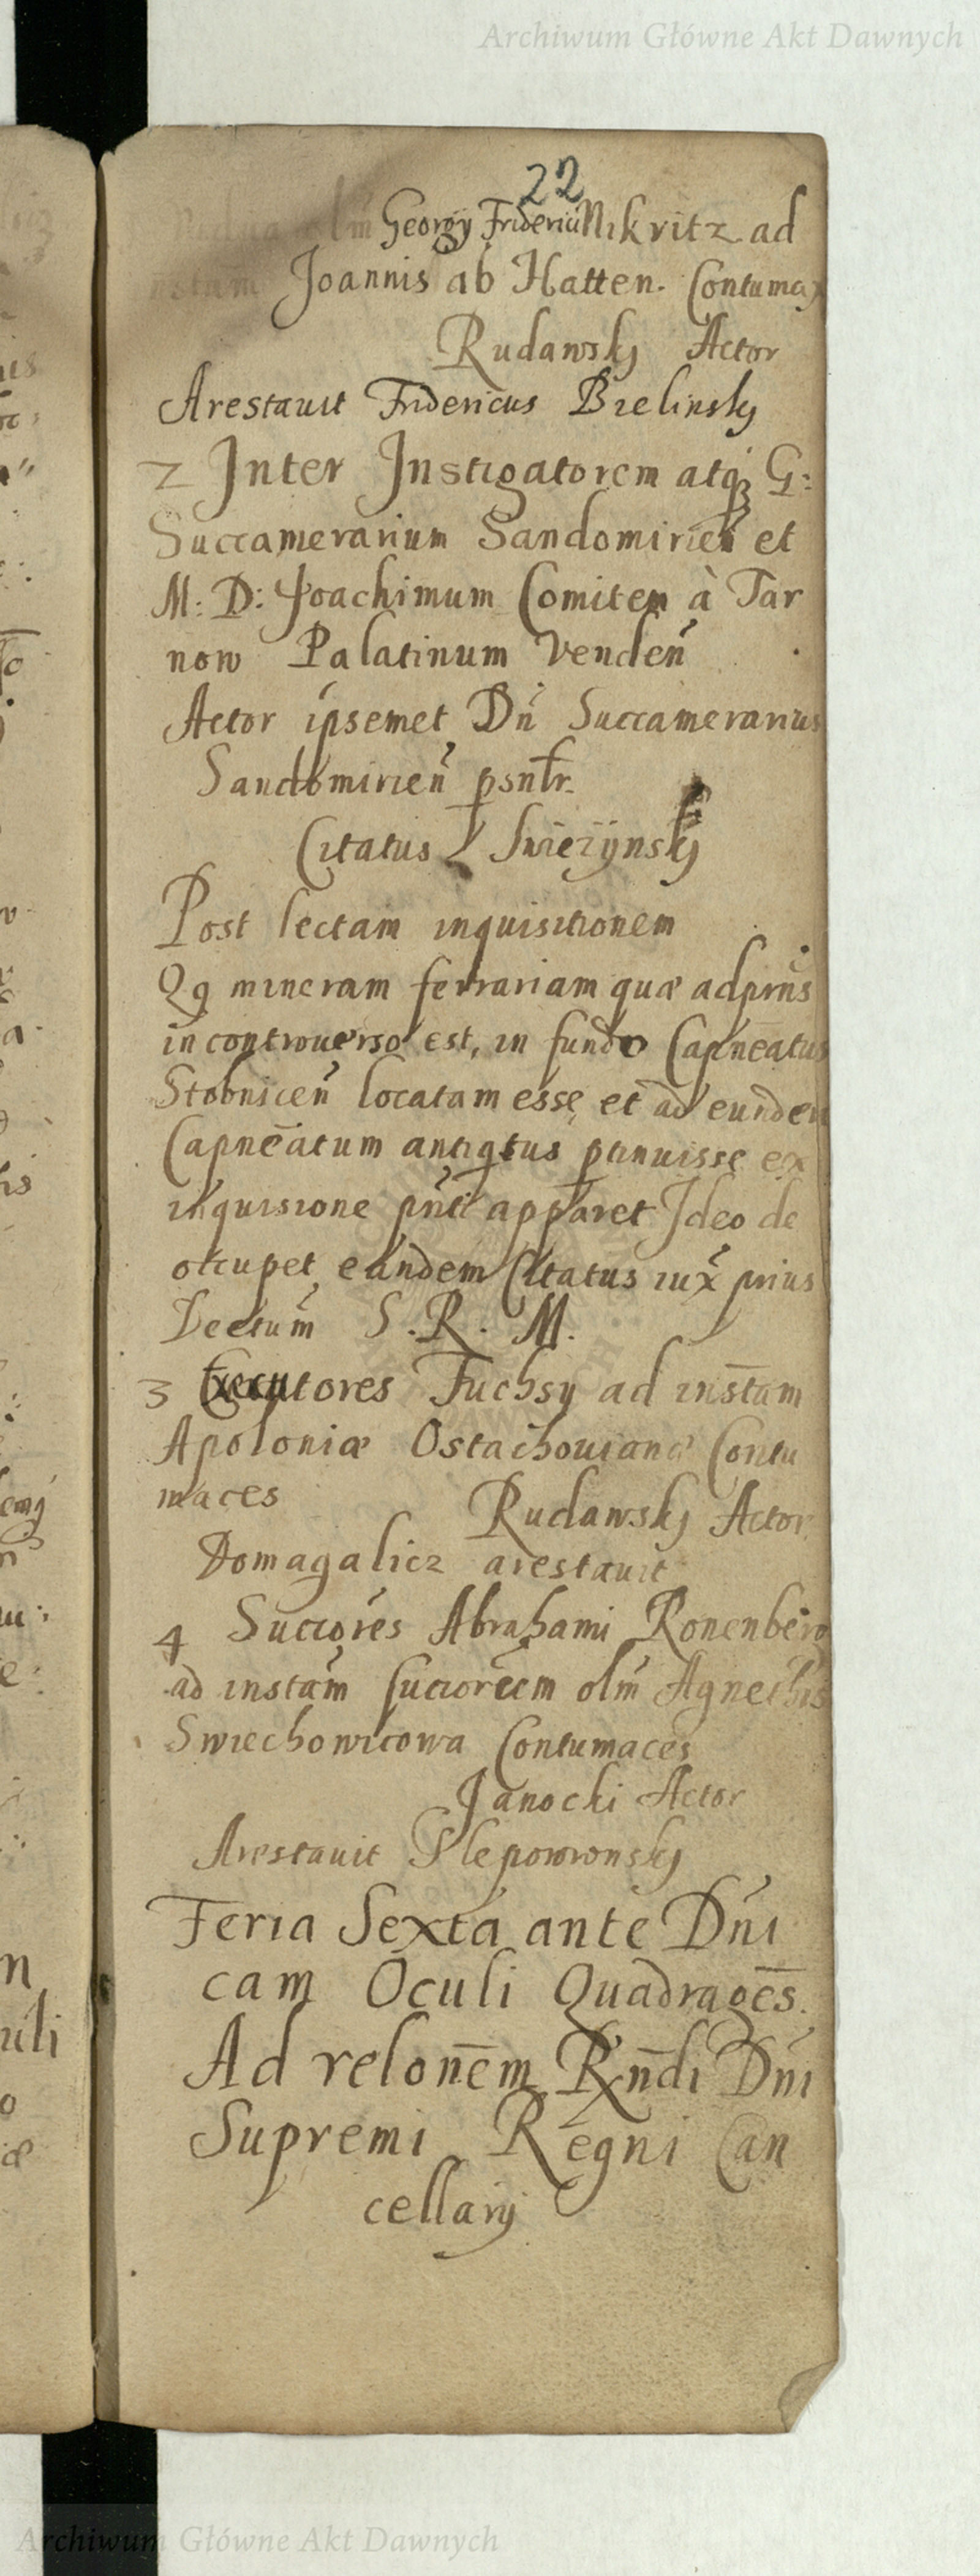 Archiwum Główne Akt Dawnych
22
Georgy Friderici Nikritz ad
Joannis ab Hatten. Contumax
Rudawsky Actor
Arestauit Fridericus Bielinsky
2 Inter Instigatorem atq; G:
Succamerarium Sandomirień et
M: D: Joachimum Comitem à Tar
now Palatinum Vendeń
Actor ipsemet Dń Succamerarius
Sandomirień psntr.
Citatus Swiezynsky
Post lectam inquisitionem
Qq mineram ferrariam quæ adprns
in controuerso est, in fundo Capneatus
Stobniceń locatam esse, et ad eundem
Capneatum antiqtus ptinuisse ex
inquisione pnti apparet Ideo de
occupet eandem Citatus iux prius
Decetum S. R. M.
3 Executores Fuchsy ad instam
Apoloniæ Ostachouianæ Contu
maces
Rudawsky Actor
Domagalicz arestauit
4 Succores Abrahami Ronenberg
ad instam sucorum olm Agnethis
Swiechowicowa Contumaces
Janocki Actor
Arestauit Slepowronsky
Feria Sexta ante Dni
cam Oculi Quadrages.
Ad relonem Rndi Dni
Supremi Regni Can
cellarij
Archiwum Główne Akt Dawnych